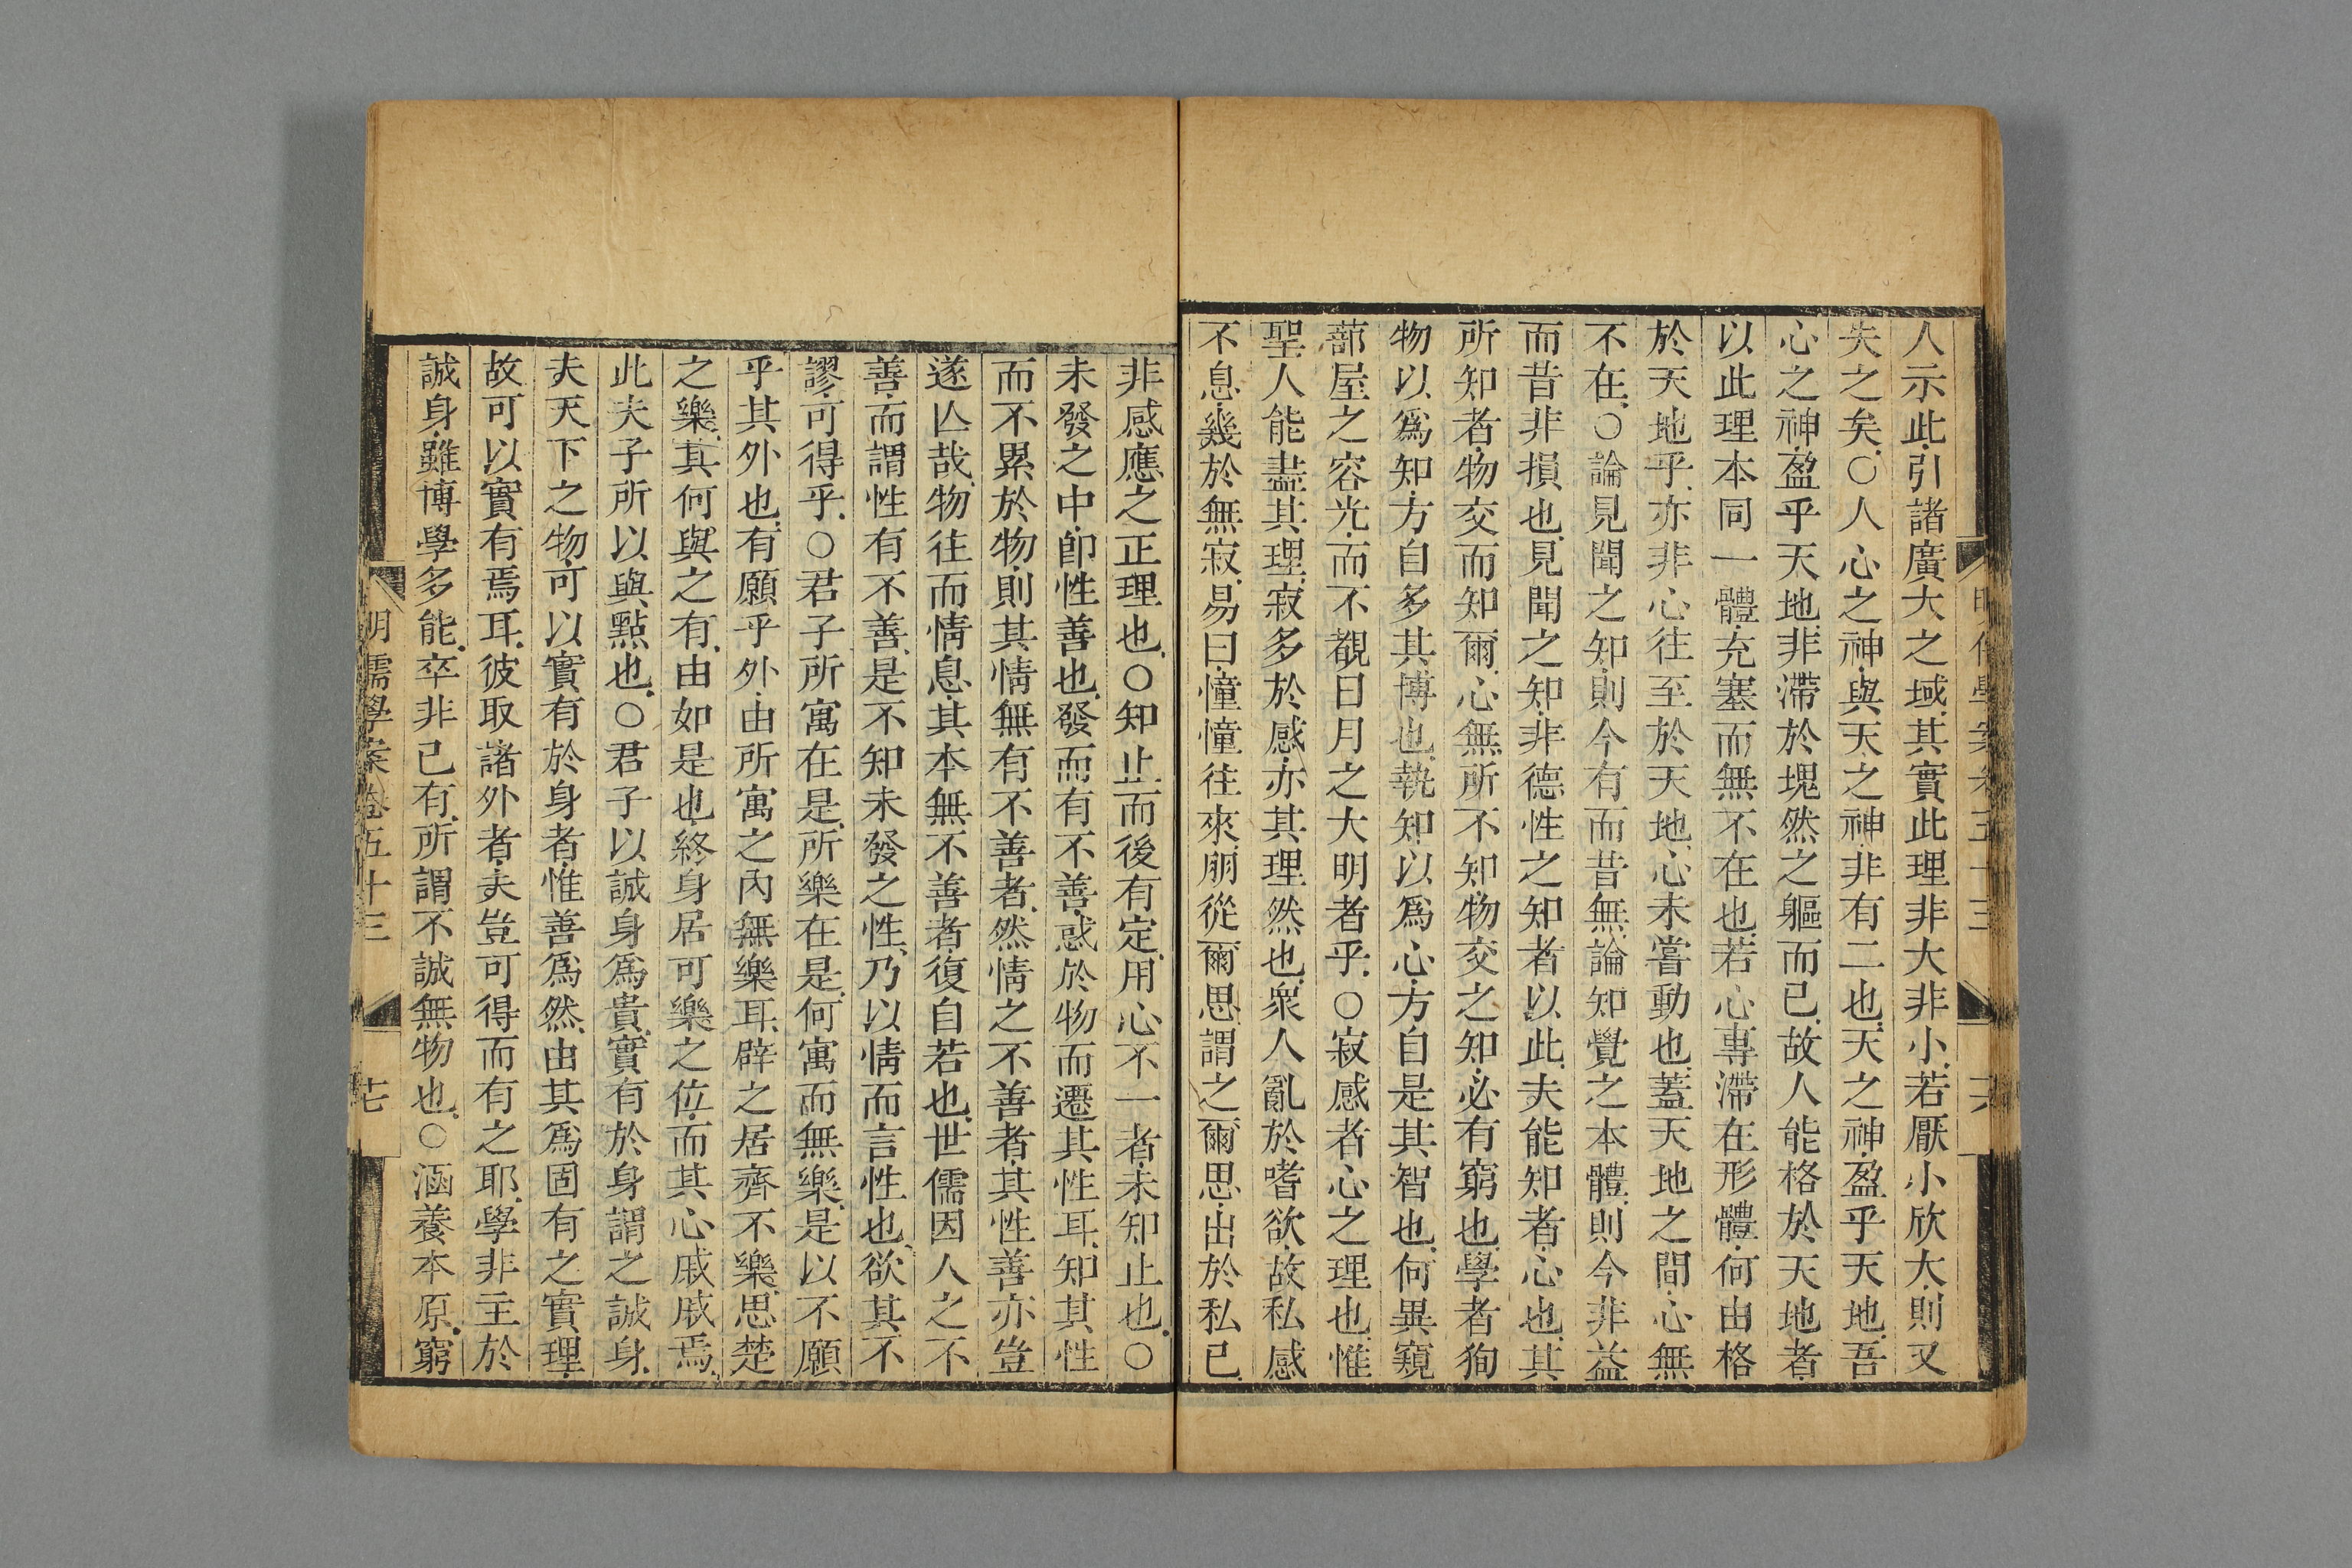 人示此引諸廣大之域其實此理非大非小若厭小欣大則又
失之矣○人心之神與天之神非有二也天之神盈乎天地吾
心之神盈乎天地非滯於塊然之軀而已故人能格於天地者
以此理本同一體充塞而無不在也若心專滯在形體何由格
於天地乎亦非心往至於天地心未嘗動也蓋天地之間心無
不在○論見聞之知則今有而昔無論知覺之本體則今非益
而昔非損也見聞之知非德性之知者以此夫能知者心也其
所知者物交而知爾心無所不知物交之知必有窮也學者狥
物以爲知方自多其博也執知以爲心方自是其智也何異窺
蔀屋之容光而不覩日月之大明者乎○寂感者心之理也惟
聖人能盡其理寂多於感亦其理然也衆人亂於嗜欲故私感
不息幾於無寂易曰憧憧往來朋從爾思謂之爾思出於私已
非感應之正理也○知止而後有定用心不一者未知止也○
未發之中卽性善也發而有不善惑於物而遷其性耳知其性
而不累於物則其情無有不善者然情之不善者其性善亦豈
遂亾哉物往而情息其本無不善者復自若也世儒因人之不
善而謂性有不善是不知未發之性乃以情而言性也欲其不
謬可得乎○君子所寓在是所樂在是何寓而無樂是以不願
乎其外也有願乎外由所寓之內無樂耳辟之居齊不樂思楚
之樂其何與之有由如是也終身居可樂之位而其心戚戚焉
此夫子所以與點也○君子以誠身爲貴實有於身謂之誠身
夫天下之物可以實有於身者惟善爲然由其爲固有之實理
故可以實有焉耳彼取諸外者夫豈可得而有之耶學非主於
誠身雖博學多能卒非己有所謂不誠無物也○涵養本原窮
明儒學案卷五十三
七